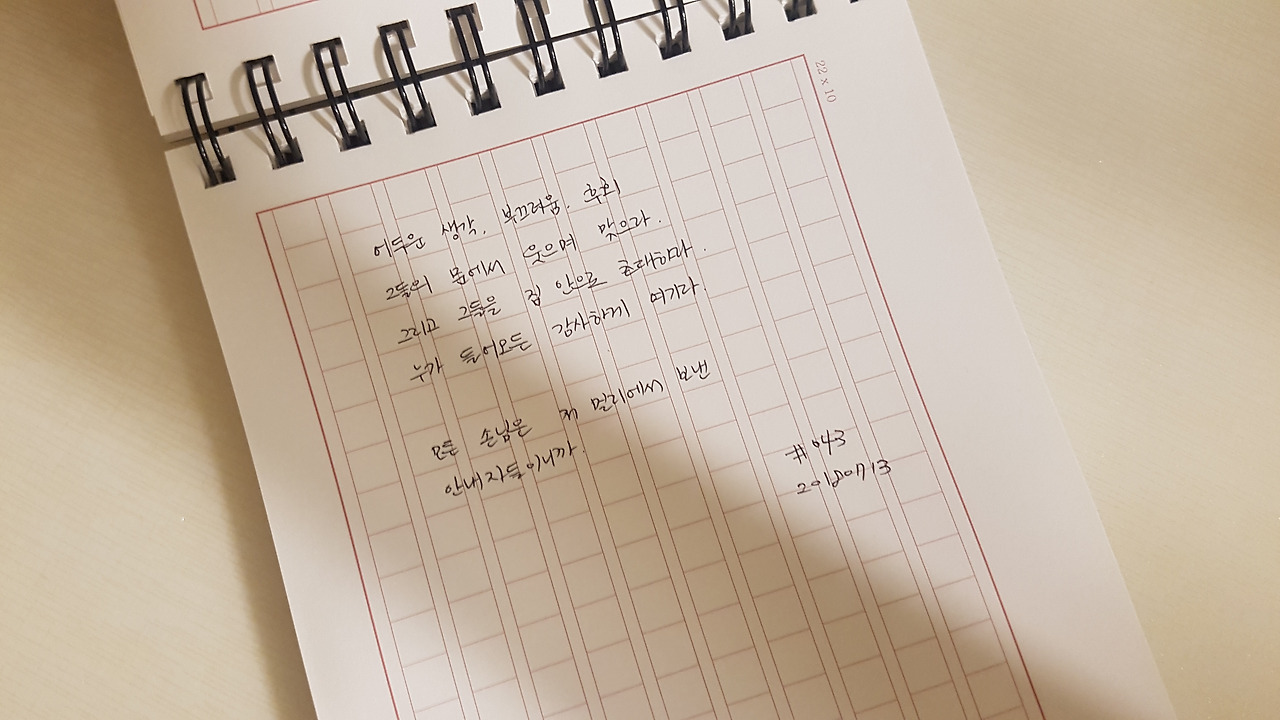 어두운 생각, 부끄러움, 후회
그들의 문에서 웃으며 맞으라.
그리고 그들을 집 안으로 초대하라.
누가 들어오든 감사하게 여기라.
모든 손님은 저 멀리에서 보낸
안내자들이니까.
#043
20180713
22 x 10